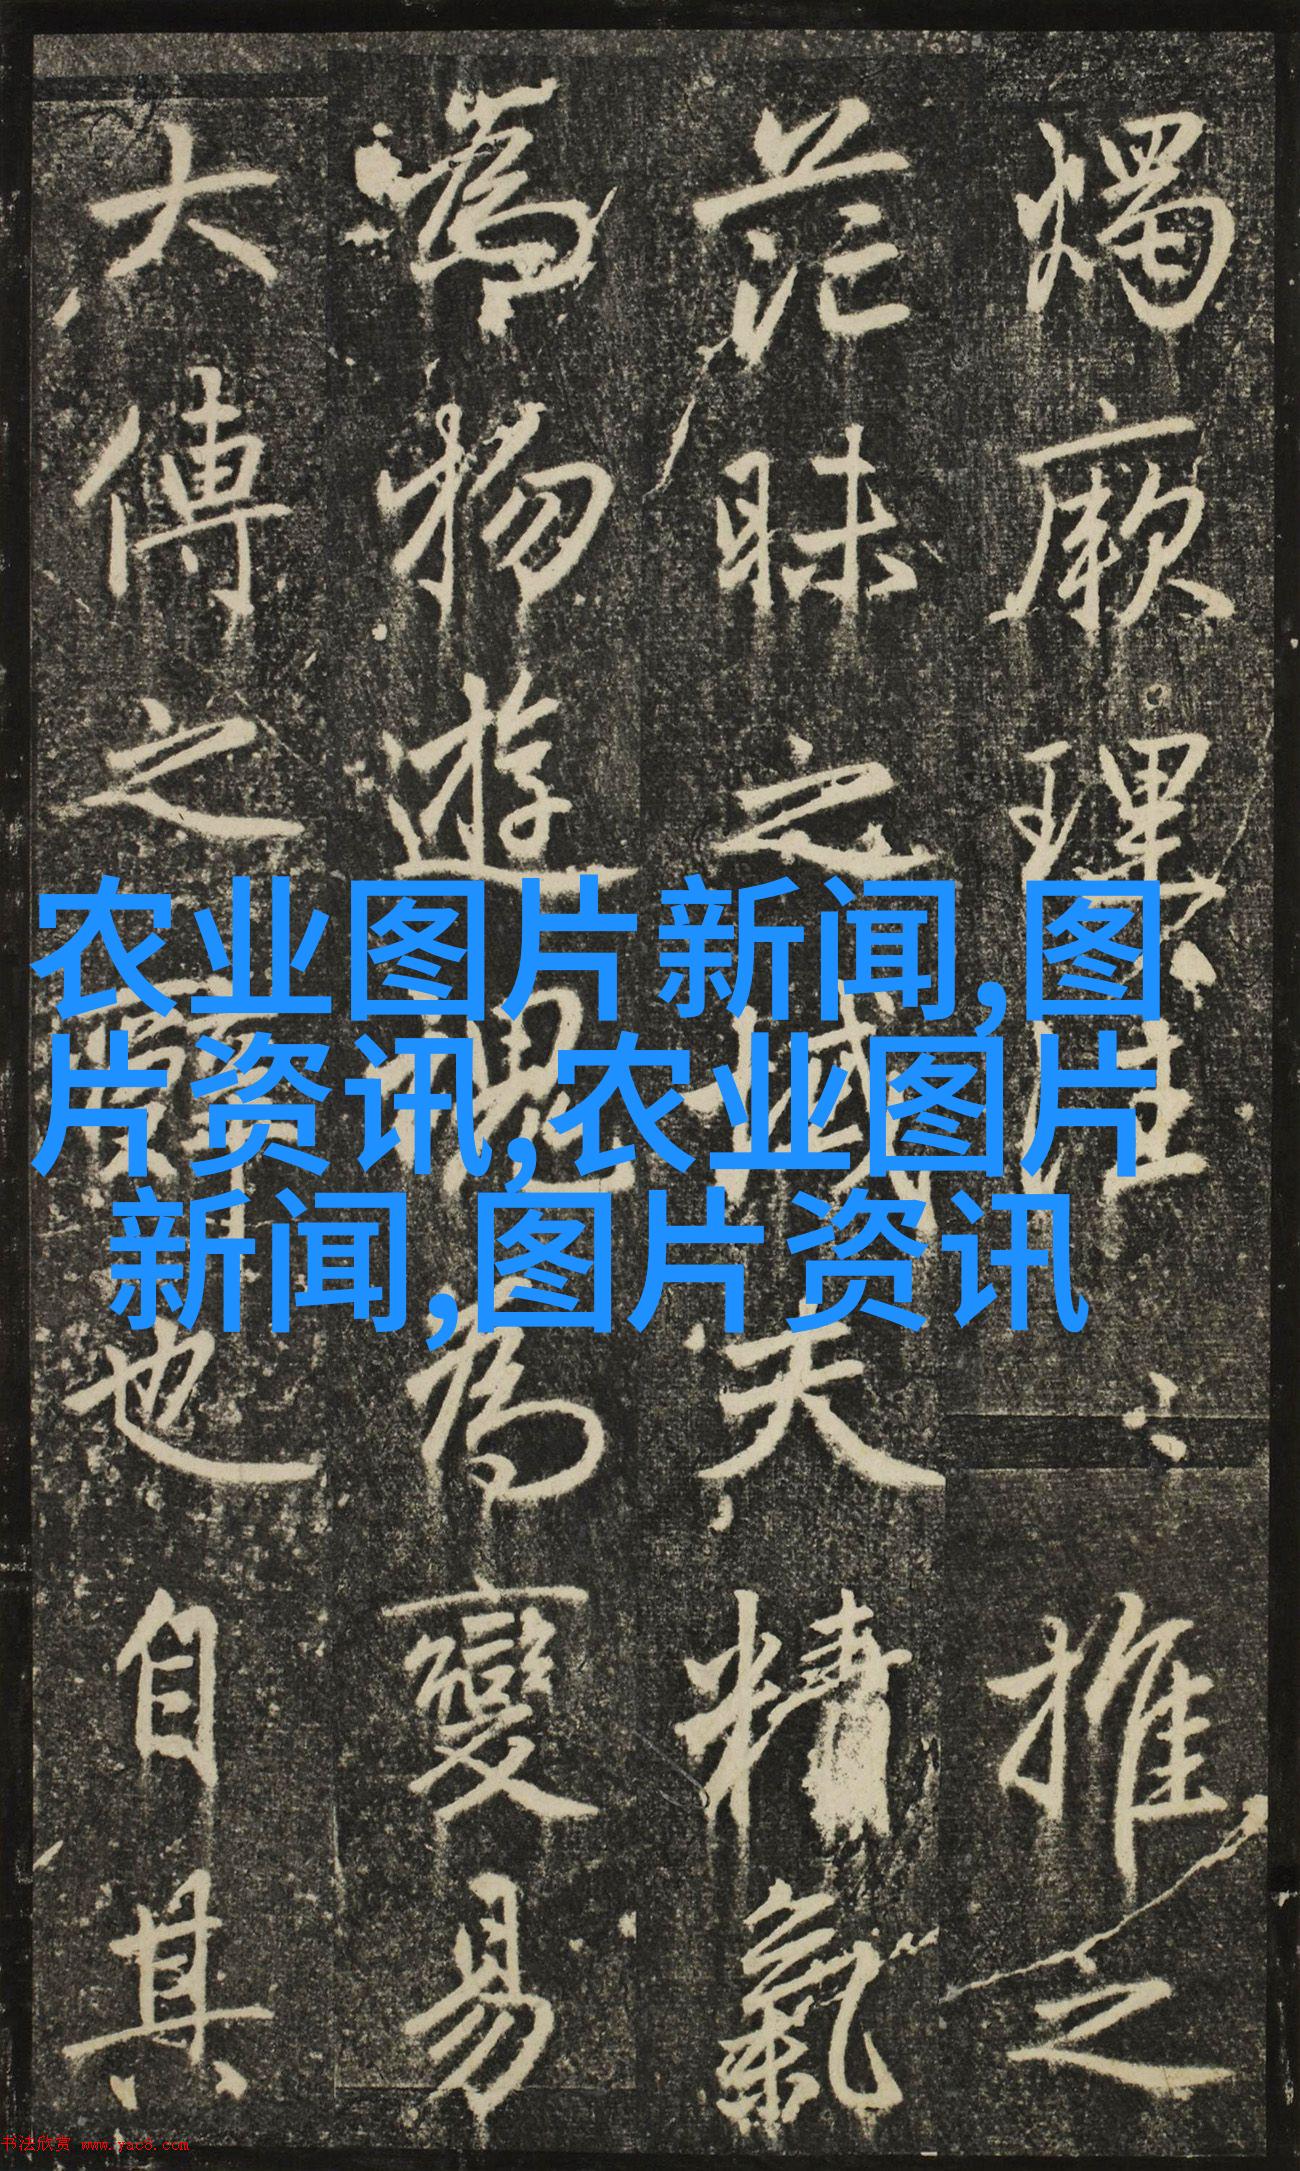 燭厥理推之
茫昧之域夫精氣
為物遊魂為變易
大傳之也自其
农业图片新闻,图
片资讯,农业图片
新闻,图片资讯
书法欣赏 www.yac8.com